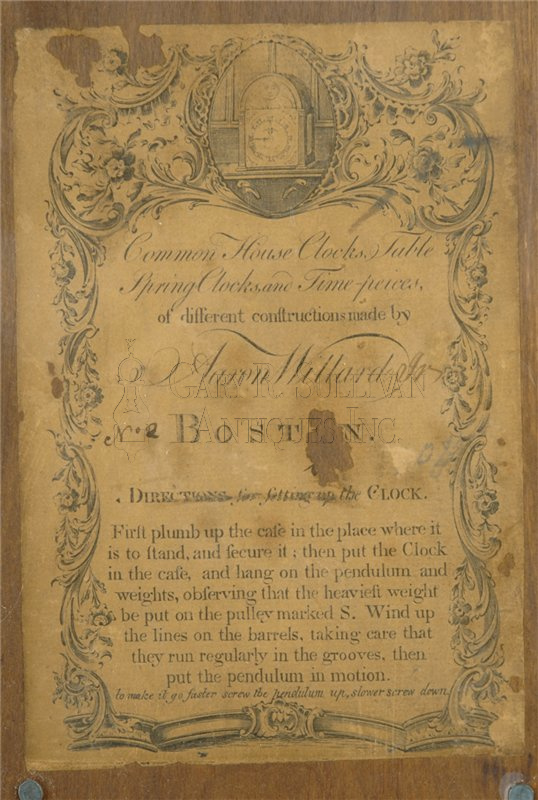 Common House Clocks, Table
Spring Clocks, and Time-peices,
of different conſtructions made by
Aaron Willard Jr
GARY R. SULLIVAN
ANTIQUES INC.
No. 2 BOSTON.
DIRECTIONS for ſetting up the CLOCK.
Firſt plumb up the caſe in the place where it
is to ſtand, and ſecure it; then put the Clock
in the caſe, and hang on the pendulum and
weights, obſerving that the heavieſt weight
be put on the pulley marked S. Wind up
the lines on the barrels, taking care that
they run regularly in the grooves, then
put the pendulum in motion.
to make it go faster screw the pendulum up, slower screw down